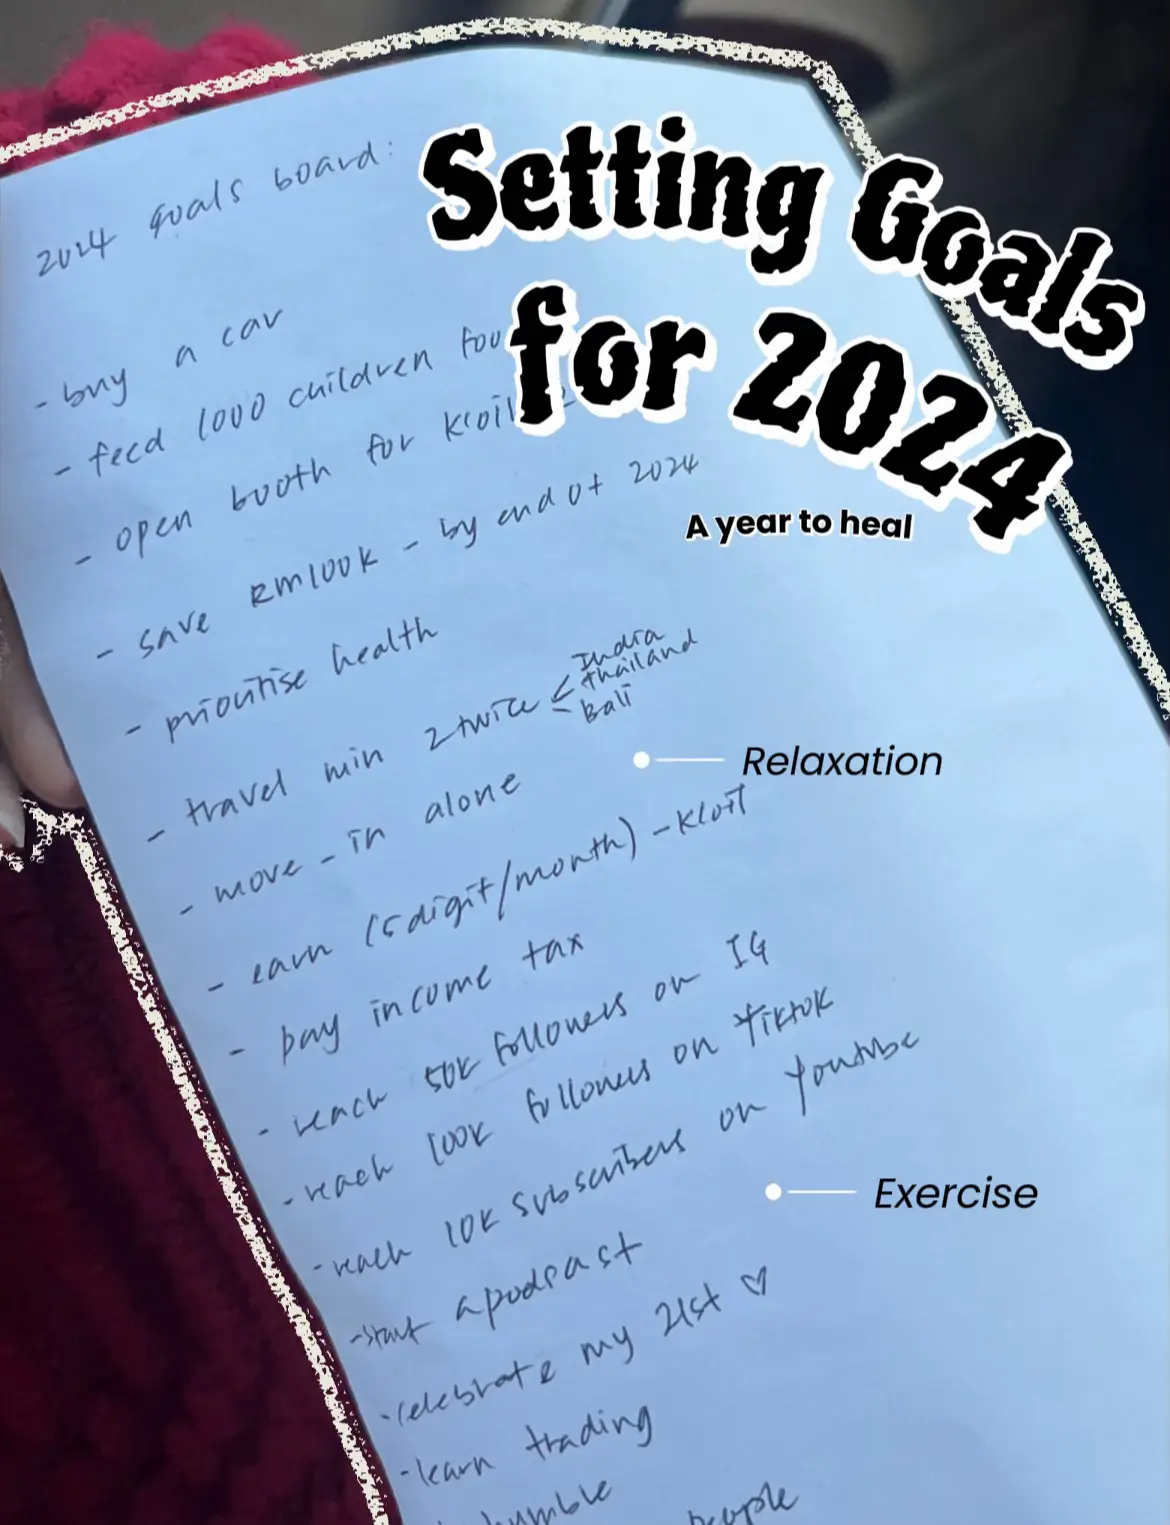 Setting Goals
for 2024
A year to heal
2024 goals board:
- buy a car
- feed 1000 children
- open booth for
- save RM100K - by end of 2024
- prioritise health
- travel min 2 twice < India
Thailand
Bali
- move-in alone
- earn (5 digit/month) - Kloil
- pay income tax
- reach 50K followers on IG
- reach 100K followers on Tiktok
- reach 10K subscribers on Youtube
- start a podcast
- celebrate my 21st ♡
- learn trading
humble
people
Relaxation
Exercise